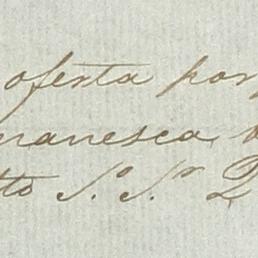 ofesta por
manesca
tto S.º S.r D